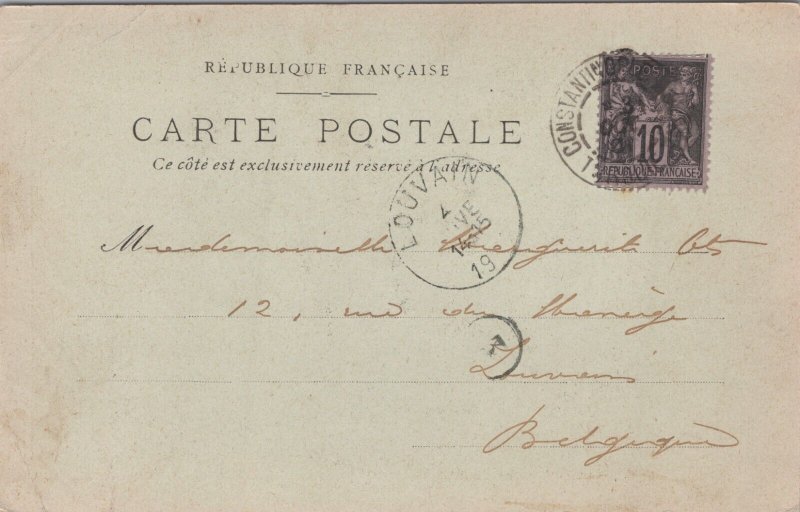 RÉPUBLIQUE FRANÇAISE
CARTE POSTALE
Ce côté est exclusivement réservé à l'adresse
CONSTANTINOPLE
POSTE
10
REPUBLIQUE FRANÇAISE
LOUVAIN
14
15
19
Mademoiselle
12, rue du
Louvain
Belgique